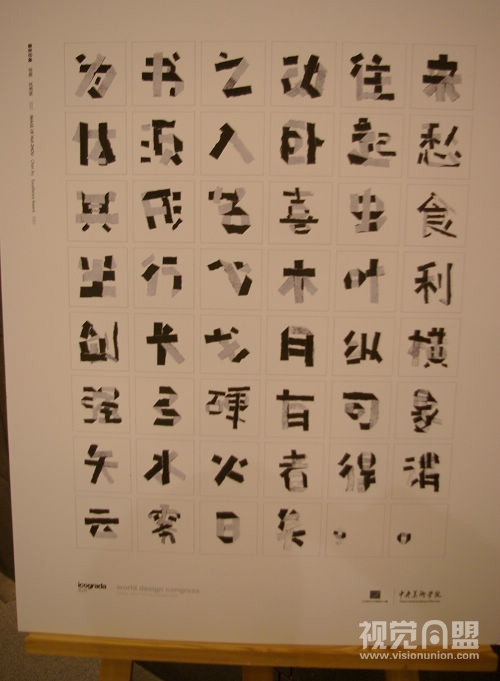 为书之动往来
体须入卧起愁
其形若喜虫食
坐行飞木叶利
剑长戈月纵横
强弓硬有可象
矢水火者得谓
云雾日矣。。
icograda
world design congress
中央美术学院
视觉同盟
www.visionunion.com